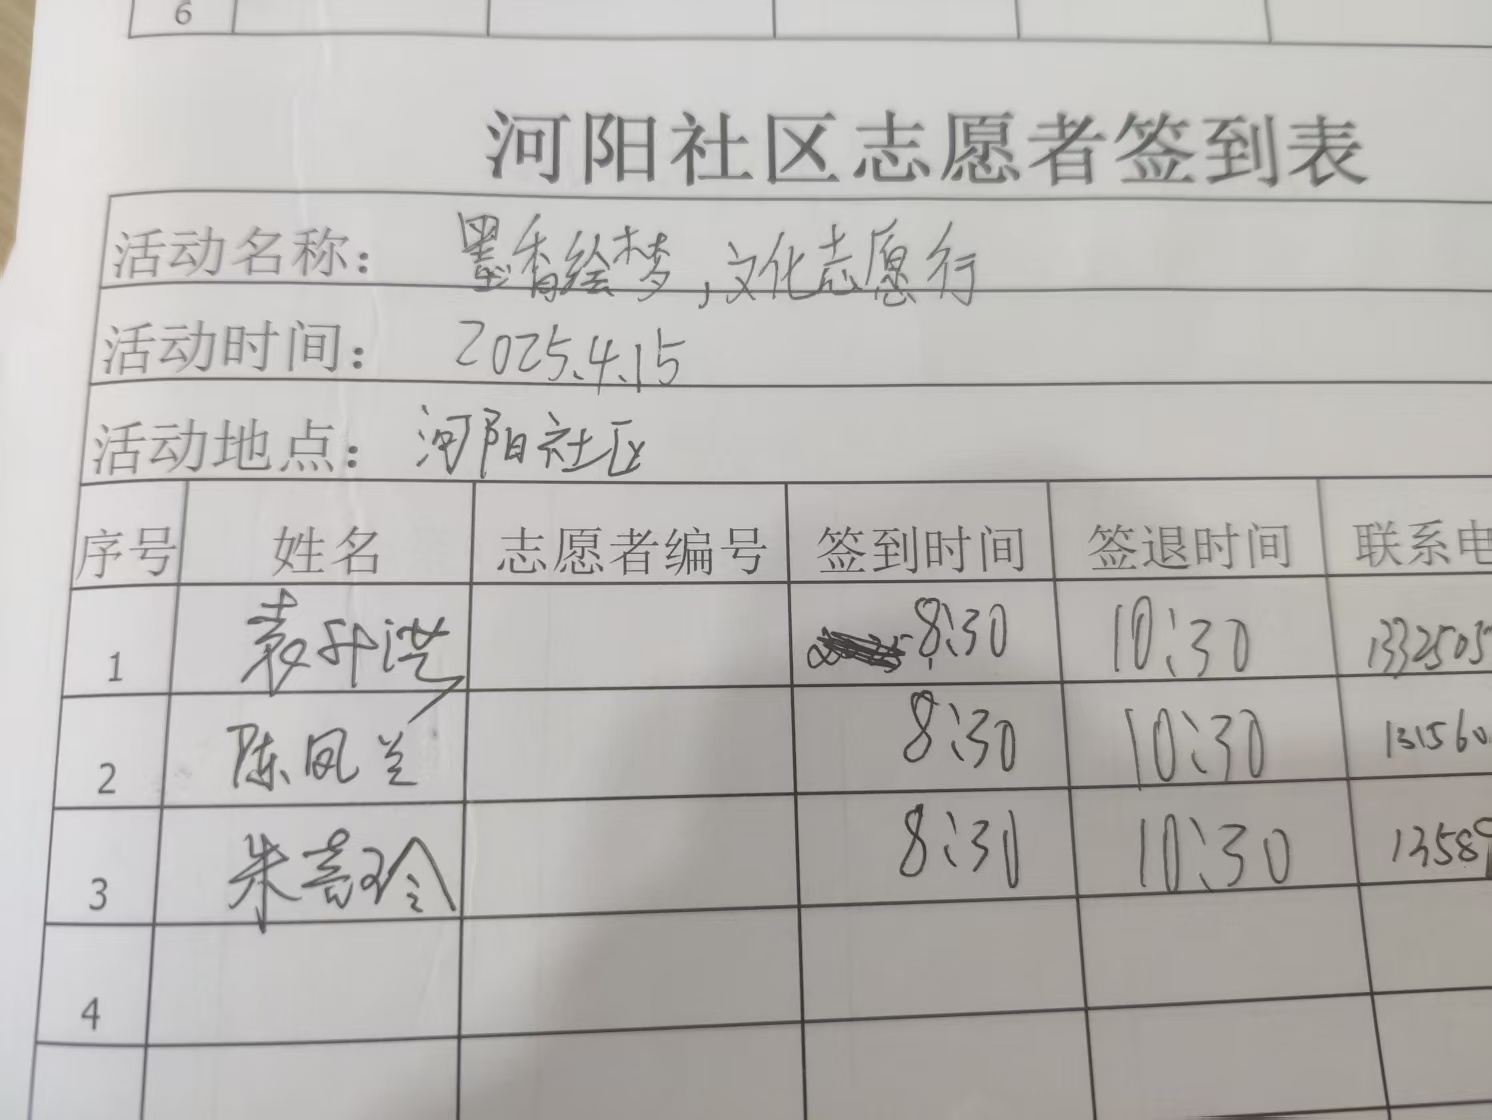 6
河阳社区志愿者签到表
活动名称： 墨香绘梦,文化志愿行
活动时间： 2025.4.15
活动地点： 河阳社区
序号 姓名 志愿者编号 签到时间 签退时间 联系电
1 袁升洪 8:30 10:30 1332505
2 陈凤兰 8:30 10:30 131560
3 朱喜玲 8:30 10:30 13589
4